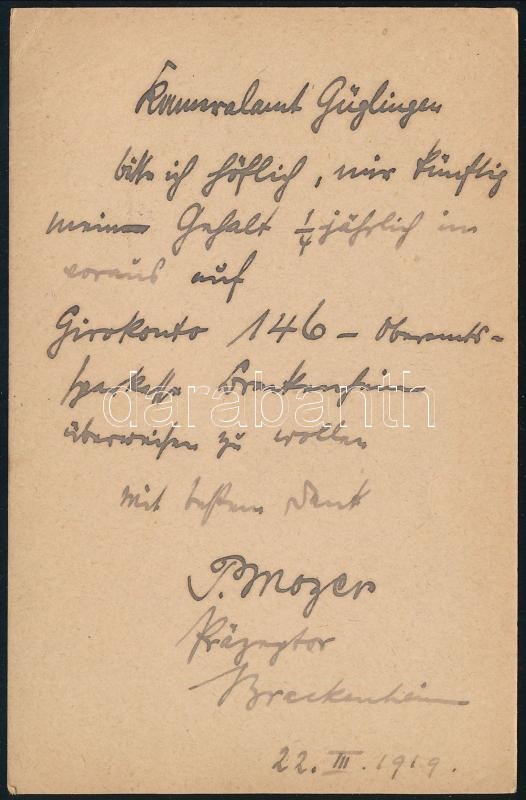 Kameralamt Güglingen
bitte ich höflich, mir künftig
mein Gehalt 1/4 jährlich im
voraus auf
Girokonto 146 – Oberamts-
sparkasse Brackenheim
darabanth
überweisen zu wollen
Mit bestem Dank
P. Mozer
Präzeptor
Brackenheim
22. III. 1919.